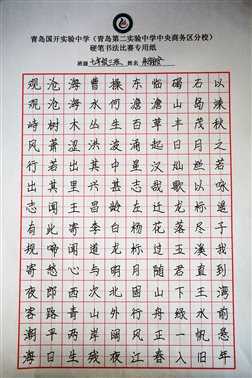 青岛国开实验中学（青岛第二实验中学中央商务区分校）
硬笔书法比赛专用纸
班级 七年级三班 姓名
观沧海曹操东临碣石以
观沧海水何澹澹山岛竦
峙树木丛生百草丰茂秋
风萧瑟洪波涌起日月之
行若出其中星汉灿烂若
出其里幸甚至哉歌以咏
志闻王昌龄左迁龙标遥
有此寄李白杨花落尽子
规啼闻道龙标过五溪我
寄愁心与明月随君直到
夜郎西次北固山下王湾
客路青山外行舟绿水前
潮平两岸阔风正一帆悬
海日生残夜江春入旧年